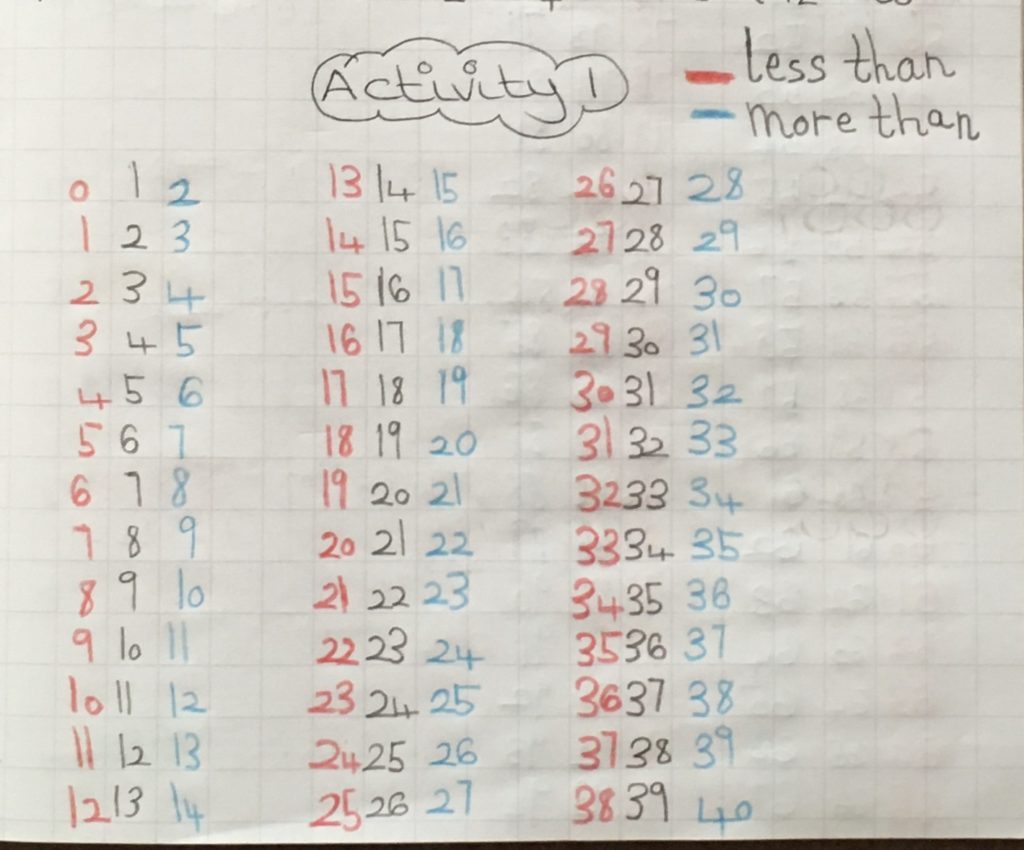 Activity 1
less than
more than
0 1 2 13 14 15 26 27 28
1 2 3 14 15 16 27 28 29
2 3 4 15 16 17 28 29 30
3 4 5 16 17 18 29 30 31
4 5 6 17 18 19 30 31 32
5 6 7 18 19 20 31 32 33
6 7 8 19 20 21 32 33 34
7 8 9 20 21 22 33 34 35
8 9 10 21 22 23 34 35 36
9 10 11 22 23 24 35 36 37
10 11 12 23 24 25 36 37 38
11 12 13 24 25 26 37 38 39
12 13 14 25 26 27 38 39 40